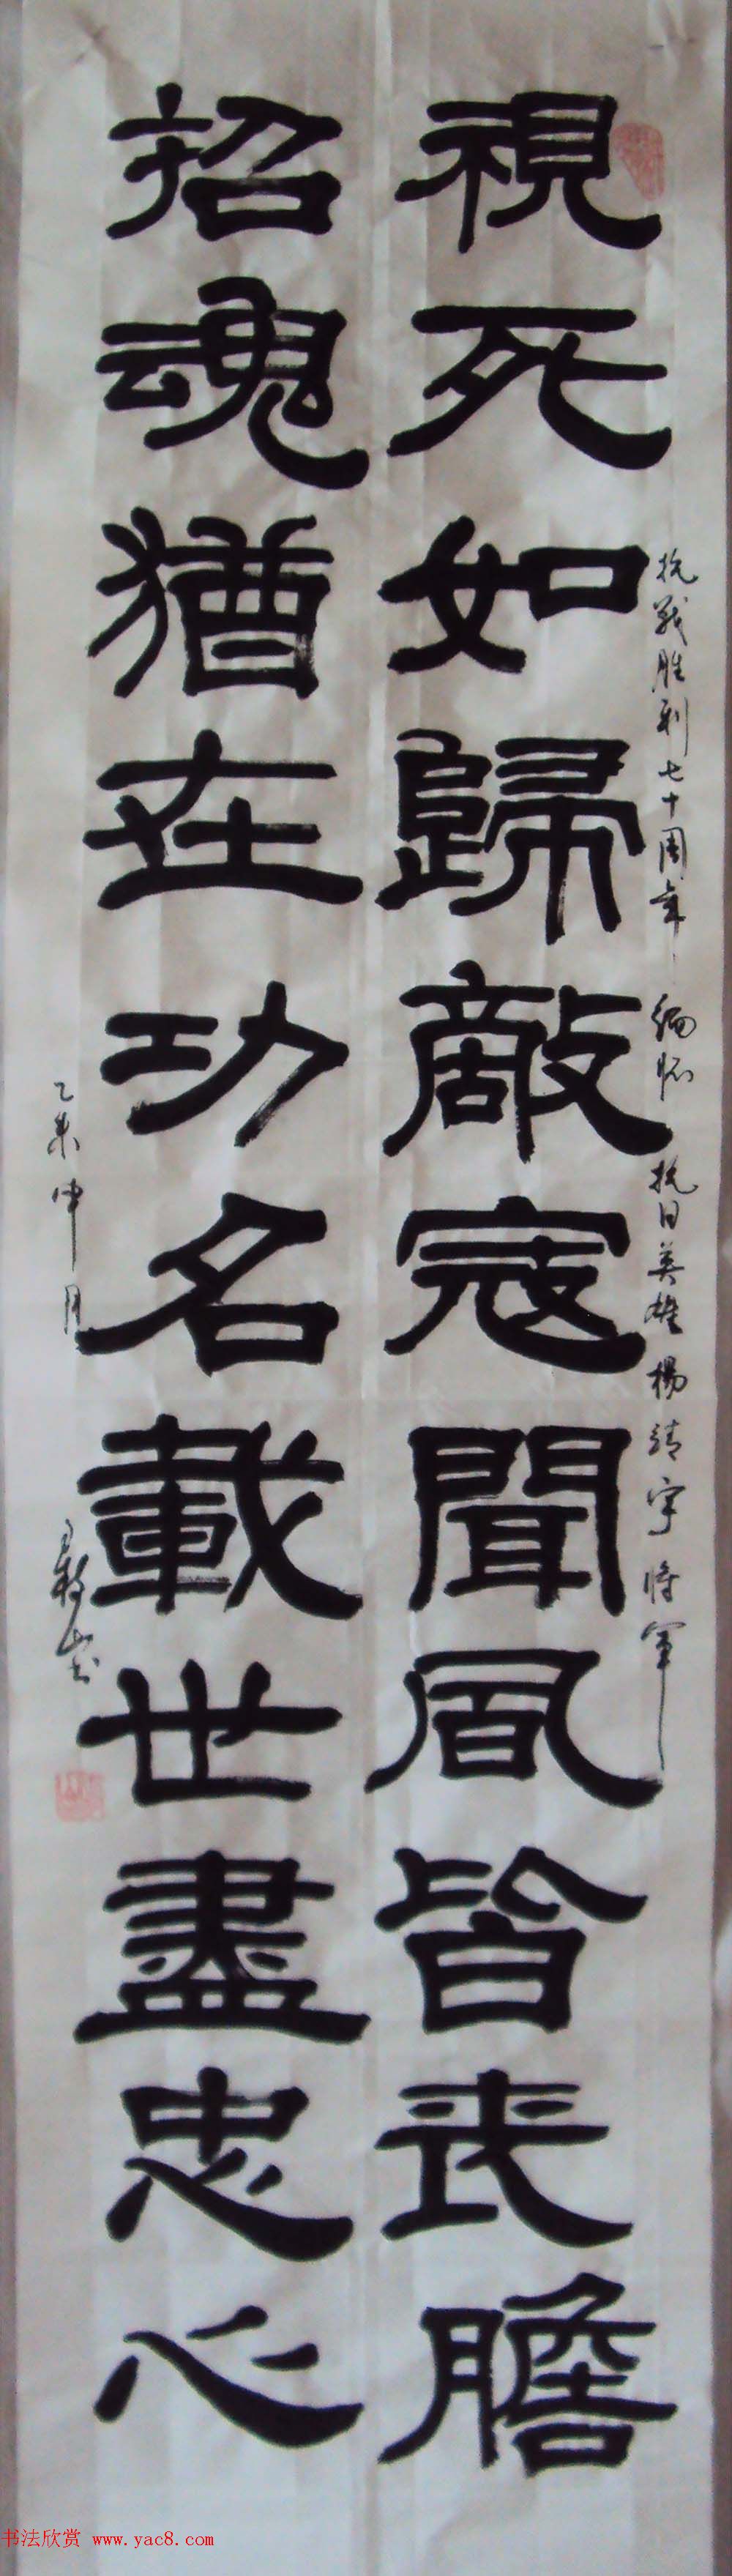 抗战胜利七十周年 缅怀 抗日英雄杨靖宇将军
視死如歸敵寇聞風皆丧膽
招魂猶在功名載世盡忠心
乙未仲月
书法欣赏 www.yac8.com